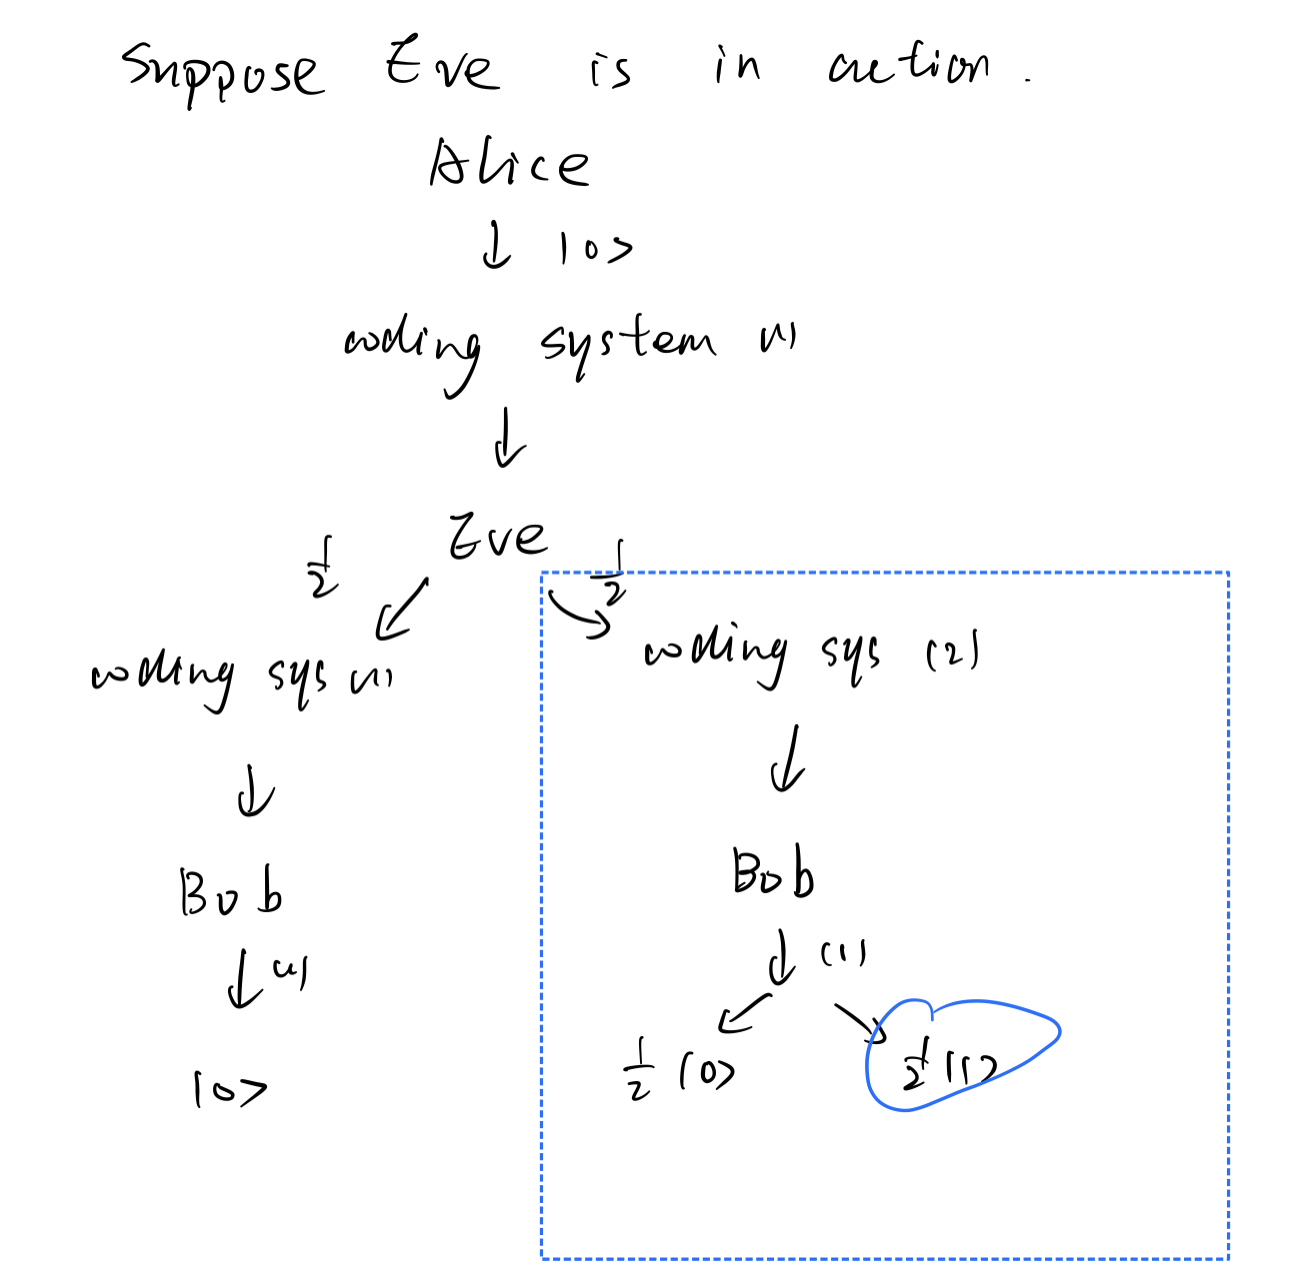 Suppose Eve is in action.
Alice
↓ |0>
coding system (1)
↓
Eve
1/2 ↙ ↘ 1/2
coding sys (1) coding sys (2)
↓ ↓
Bob Bob
↓ (1) ↓ (1)
↙ ↘
|0> 1/2 |0> 1/2 |1>